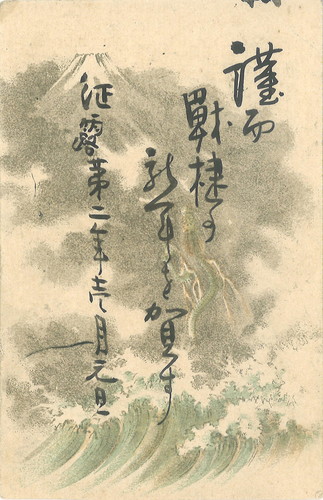 謹而
戰捷の
新年を賀す
征露第二年壱月元旦